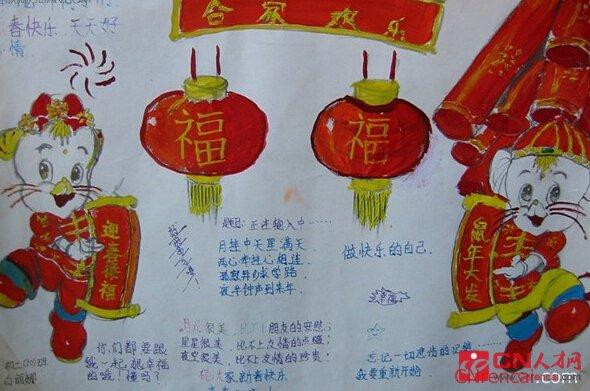 合家欢乐
春快乐 天天好
情
福
福
迎春接福
鼠年大发
题目: 正在输入中……
月挂中天星满天
两心牵挂心相连
夜半钟声到来年
做快乐的自己.
你们都要跟
我一起把幸福
的哦! 懂吗?
月儿很美 比不上 朋友的安慰;
星星很美 比不上友情的点缀;
夜空很美 比不上友情的珍贵;
祝大家新春快乐
忘记一切悲伤的记忆
我要重新开始
初二(10)班
白丽娜
CN人才网